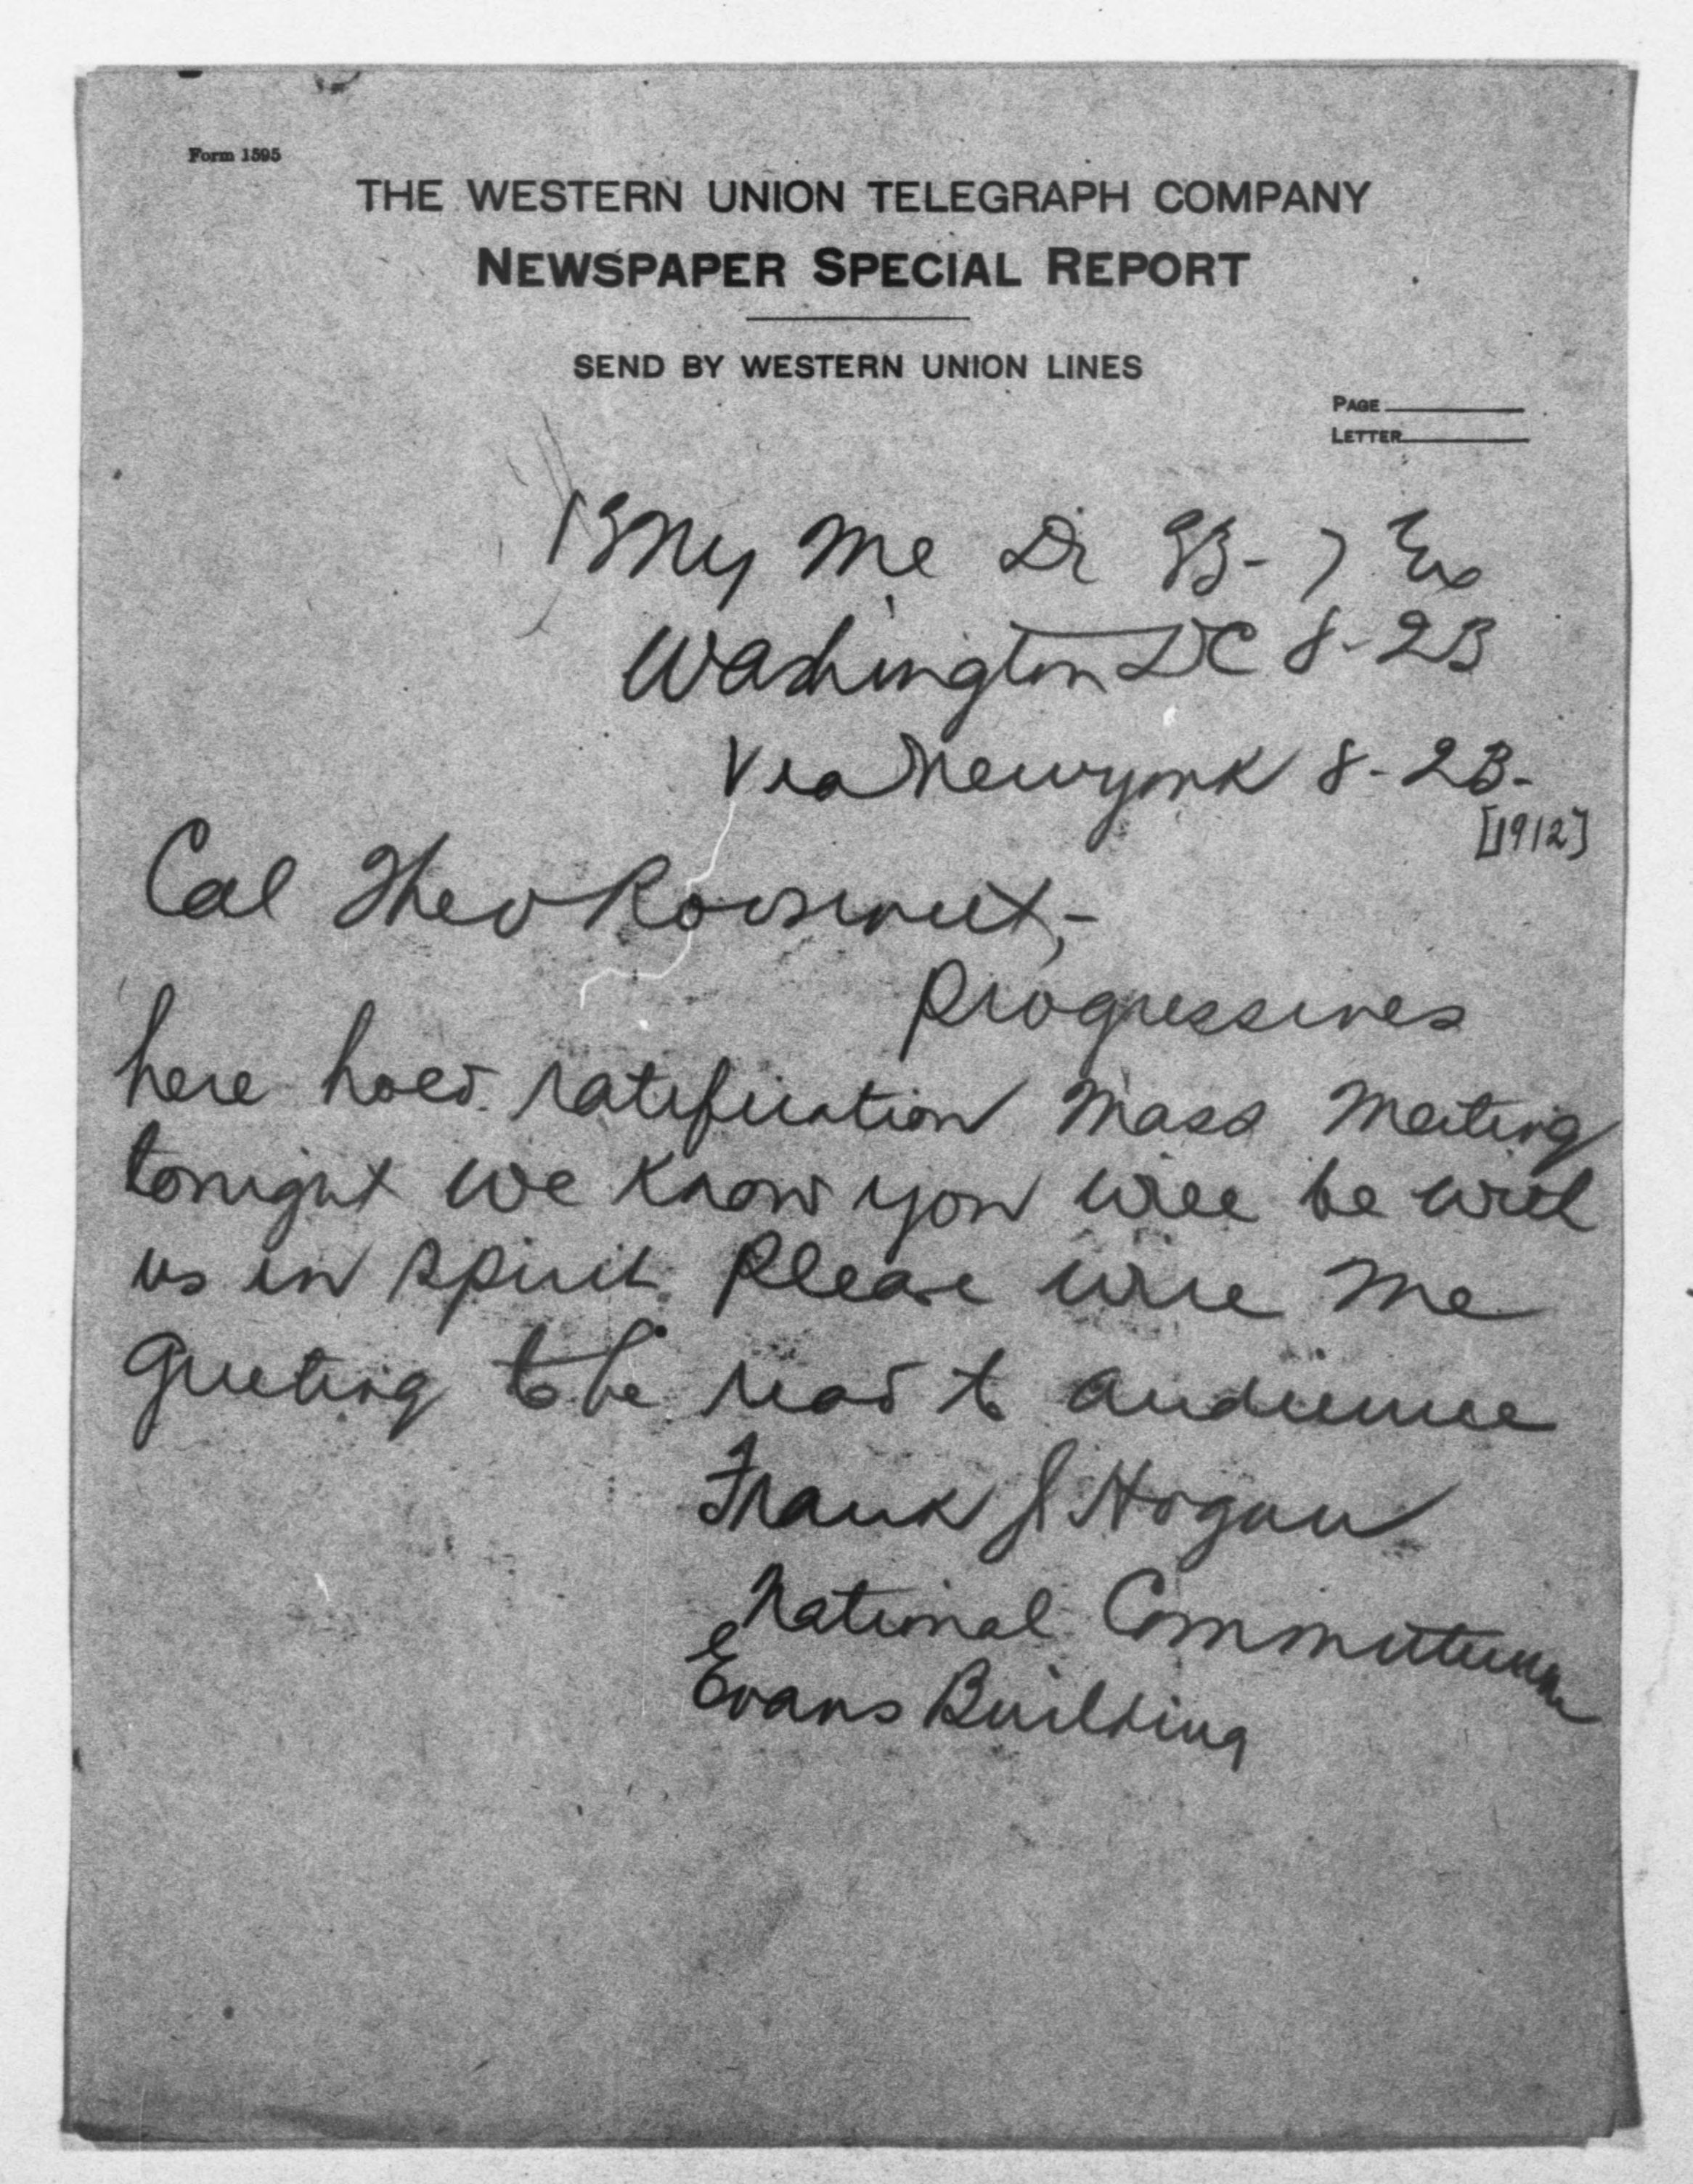 Form 1595
THE WESTERN UNION TELEGRAPH COMPANY
NEWSPAPER SPECIAL REPORT
SEND BY WESTERN UNION LINES
PAGE
LETTER
Washington DC 8-23
Via Newyork 8-23-
[1912]
Col Theo Roosevelt,-
Progressives
here hold ratification mass meeting
tonight we know you will be with
us in spirit. Please wire me
greeting to be read to audience
Frank J Hogan
National Committeeman
Evans Building